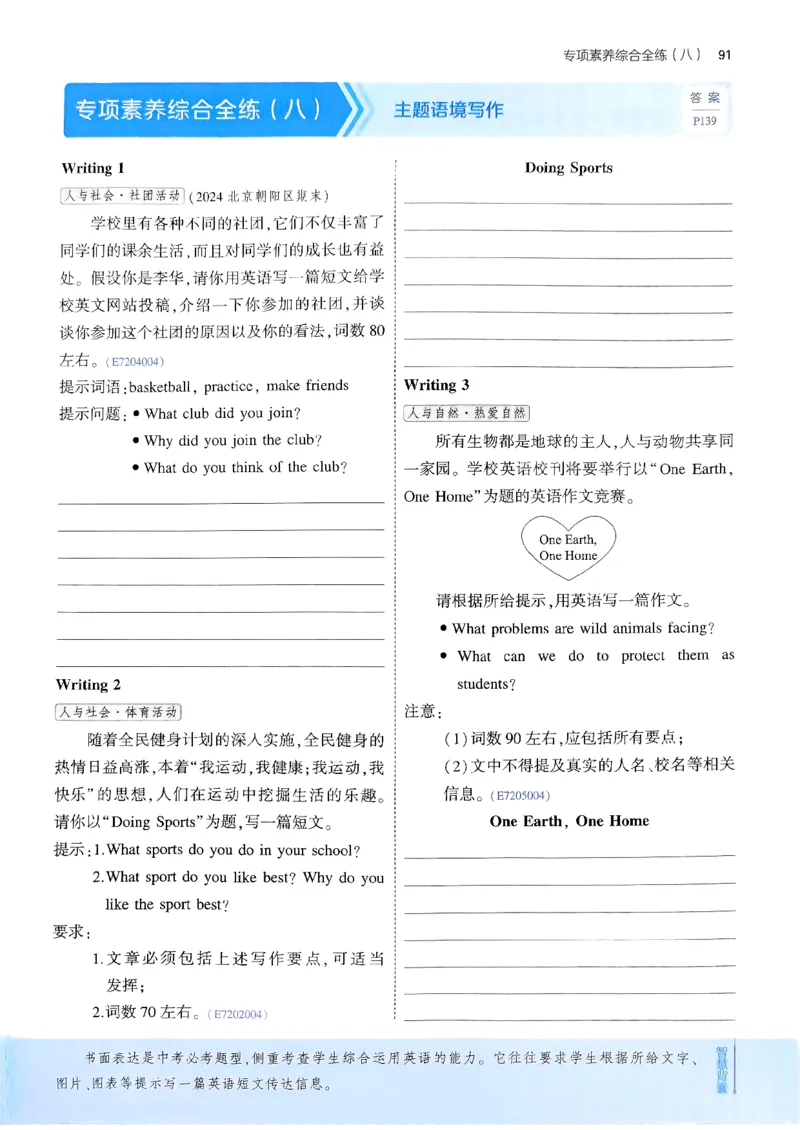 专项素养综合全练(八) 91
专项素养综合全练(八)
主题语境写作
答案
P139
Writing 1
人与社会·社团活动 (2024北京朝阳区期末)
学校里有各种不同的社团,它们不仅丰富了
同学们的课余生活,而且对同学们的成长也有益
处。假设你是李华,请你用英语写一篇短文给学
校英文网站投稿,介绍一下你参加的社团,并谈
谈你参加这个社团的原因以及你的看法,词数80
左右。(E7204004)
提示词语:basketball, practice, make friends
提示问题:● What club did you join?
● Why did you join the club?
● What do you think of the club?
Writing 2
人与社会·体育活动
随着全民健身计划的深入实施,全民健身的
热情日益高涨,本着“我运动,我健康;我运动,我
快乐”的思想,人们在运动中挖掘生活的乐趣。
请你以“Doing Sports”为题,写一篇短文。
提示:1.What sports do you do in your school?
2.What sport do you like best? Why do you
like the sport best?
要求:
1.文章必须包括上述写作要点,可适当
发挥;
2.词数70左右。(E7202004)
Doing Sports
Writing 3
人与自然·热爱自然
所有生物都是地球的主人,人与动物共享同
一家园。学校英语校刊将要举行以“One Earth,
One Home”为题的英语作文竞赛。
One Earth,
One Home
请根据所给提示,用英语写一篇作文。
● What problems are wild animals facing?
● What can we do to protect them as
students?
注意:
(1)词数90左右,应包括所有要点;
(2)文中不得提及真实的人名、校名等相关
信息。(E7205004)
One Earth, One Home
书面表达是中考必考题型,侧重考查学生综合运用英语的能力。它往往要求学生根据所给文字、
图片、图表等提示写一篇英语短文传达信息。
智慧背囊